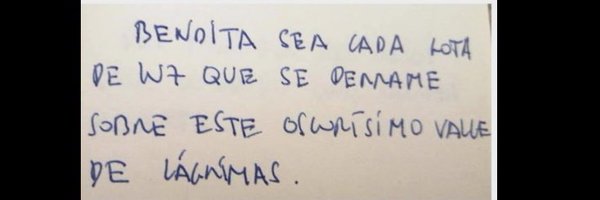 BENDITA SEA CADA GOTA
DE LUZ QUE SE DERRAME
SOBRE ESTE OSCURÍSIMO VALLE
DE LÁGRIMAS.